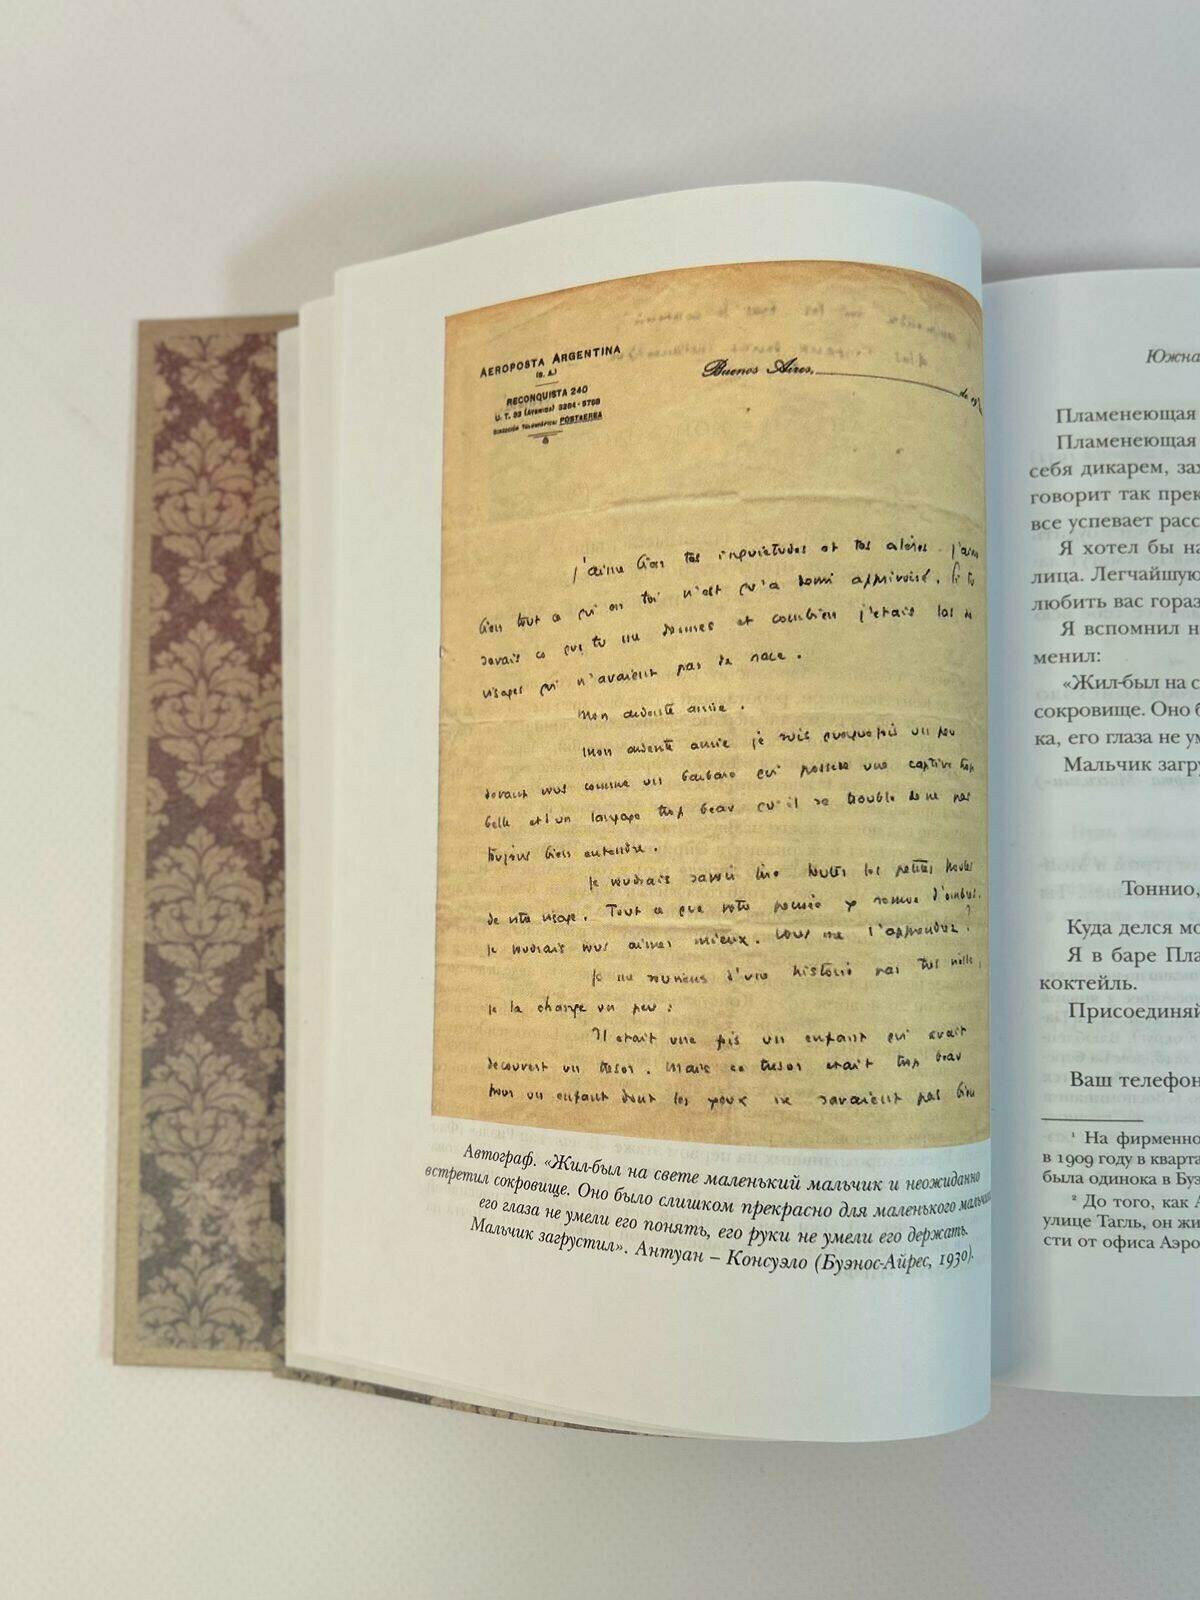 AEROPOSTA ARGENTINA
(S. A.)
RECONQUISTA 240
U. T. 33 (AVENIDA) 3264 - 5768
DIRECCIÓN TELEGRÁFICA: POSTAEREA
Buenos Aires, de 19
j'aime bien tes inquiétudes et tes colères. j'aime
bien tout ce qui en toi n'est qu'à demi apprivoisé. Si tu
savais ce que tu me donnes et combien j'étais las de
visages qui n'avaient pas de race.
Mon ardente amie.
Mon ardente amie je suis quelquefois un peu
devant vous comme un barbare qui possède une captive trop
belle et d'un langage trop beau qu'il se trouble de ne pas
toujours bien entendre.
Je voudrais savoir lire toutes les petites
de votre visage. Tout ce que votre pensée y remue d'ombres.
Je voudrais vous aimer mieux. Vous me l'apprendrez ?
Je me souviens d'une histoire pas très vieille,
je la change un peu :
Il était une fois un enfant qui avait
découvert un trésor. Mais ce trésor était trop beau
pour un enfant dont les yeux ne savaient pas bien
Автограф. «Жил-был на свете маленький мальчик и неожиданно
встретил сокровище. Оно было слишком прекрасно для маленького мальчика
его глаза не умели его понять, его руки не умели его держать.
Мальчик загрустил». Антуан – Консуэло (Буэнос-Айрес, 1930).
Южна
Пламенеющая
Пламенеющая
себя дикарем, зах
говорит так прек
все успевает расс
Я хотел бы на
лица. Легчайшую
любить вас гораз
Я вспомнил н
менил:
«Жил-был на с
сокровище. Оно б
ка, его глаза не ум
Мальчик загру
Тоннио,
Куда делся мо
Я в баре Пла
коктейль.
Присоединяй
Ваш телефон
¹ На фирменно
в 1909 году в кварта
была одинока в Буэ
² До того, как А
улице Тагль, он жи
сти от офиса Аэро